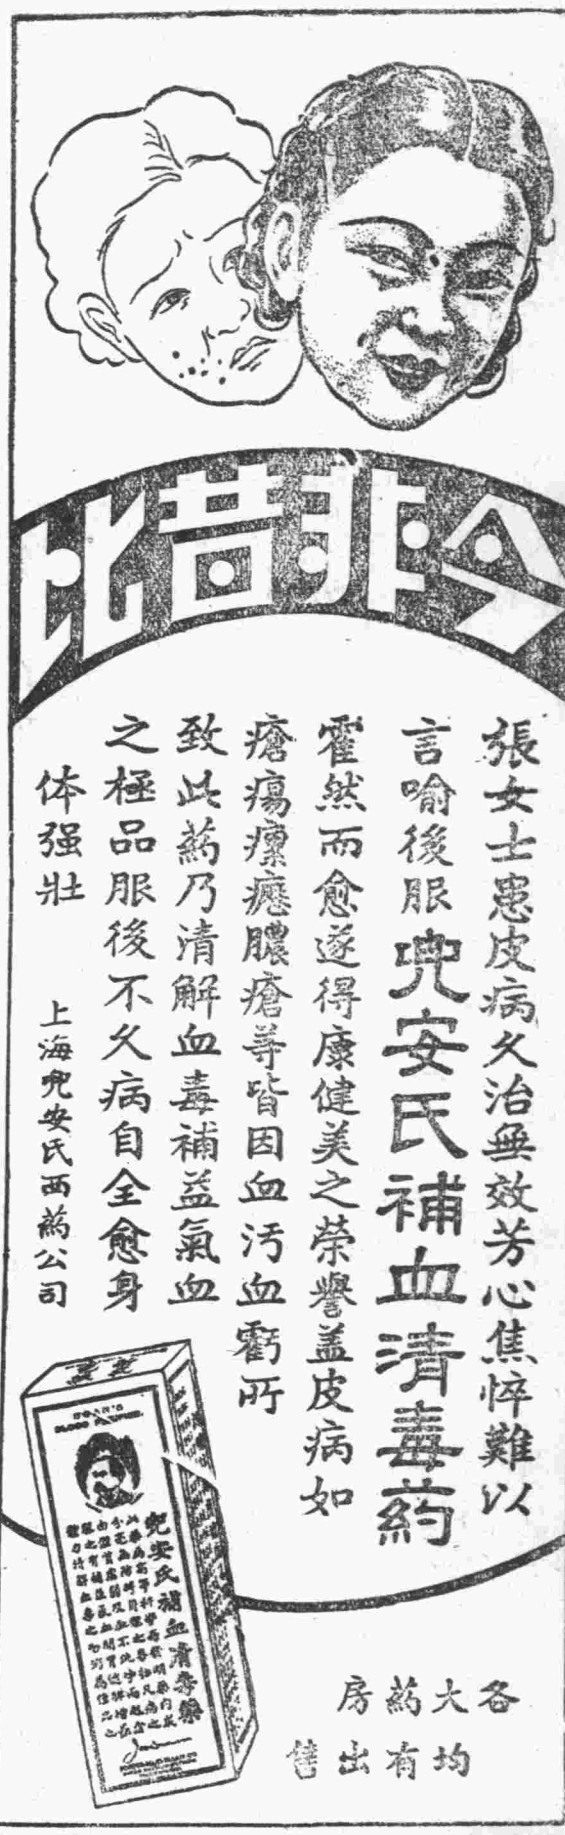 今非昔比
張女士患皮病久治無效芳心焦悴難以
言喻後服兜安氏補血清毒药
霍然而愈遂得康健美之荣譽盖皮病如
瘡瘍瘰癧膿瘡等皆因血污血虧所
致此药乃清解血毒補益氣血
之極品服後不久病自全愈身
体强壯
上海兜安氏西药公司
DOAN'S
BLOOD PURIFIER
兜安氏補血清毒藥
各大药房
均有出售